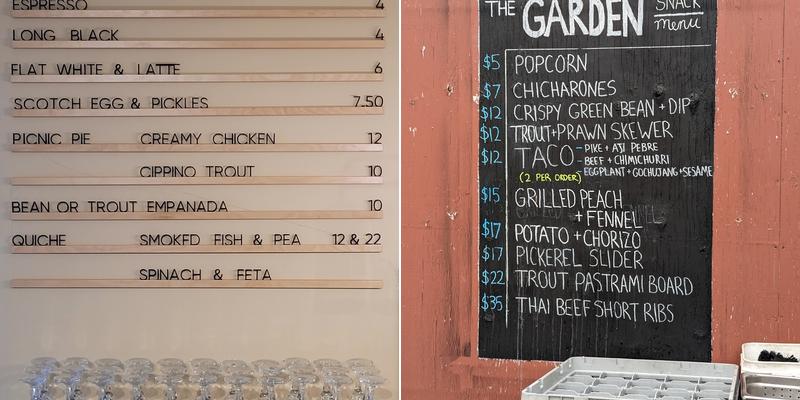 ESPRESSO 4
LONG BLACK 4
FLAT WHITE & LATTE 6
SCOTCH EGG & PICKLES 7.50
PICNIC PIE CREAMY CHICKEN 12
CIPPINO TROUT 10
BEAN OR TROUT EMPANADA 10
QUICHE SMOKED FISH & PEA 12 & 22
SPINACH & FETA
THE GARDEN SNACK menu
$5 POPCORN
$7 CHICHARONES
$12 CRISPY GREEN BEAN + DIP
$12 TROUT+PRAWN SKEWER
$12 TACO - PIKE + AJI PEBRE
BEEF + CHIMICHURRI
(2 PER ORDER) EGGPLANT + GOCHUJANG + SESAME
$15 GRILLED PEACH
+ FENNEL
$17 POTATO + CHORIZO
$17 PICKEREL SLIDER
$22 TROUT PASTRAMI BOARD
$35 THAI BEEF SHORT RIBS